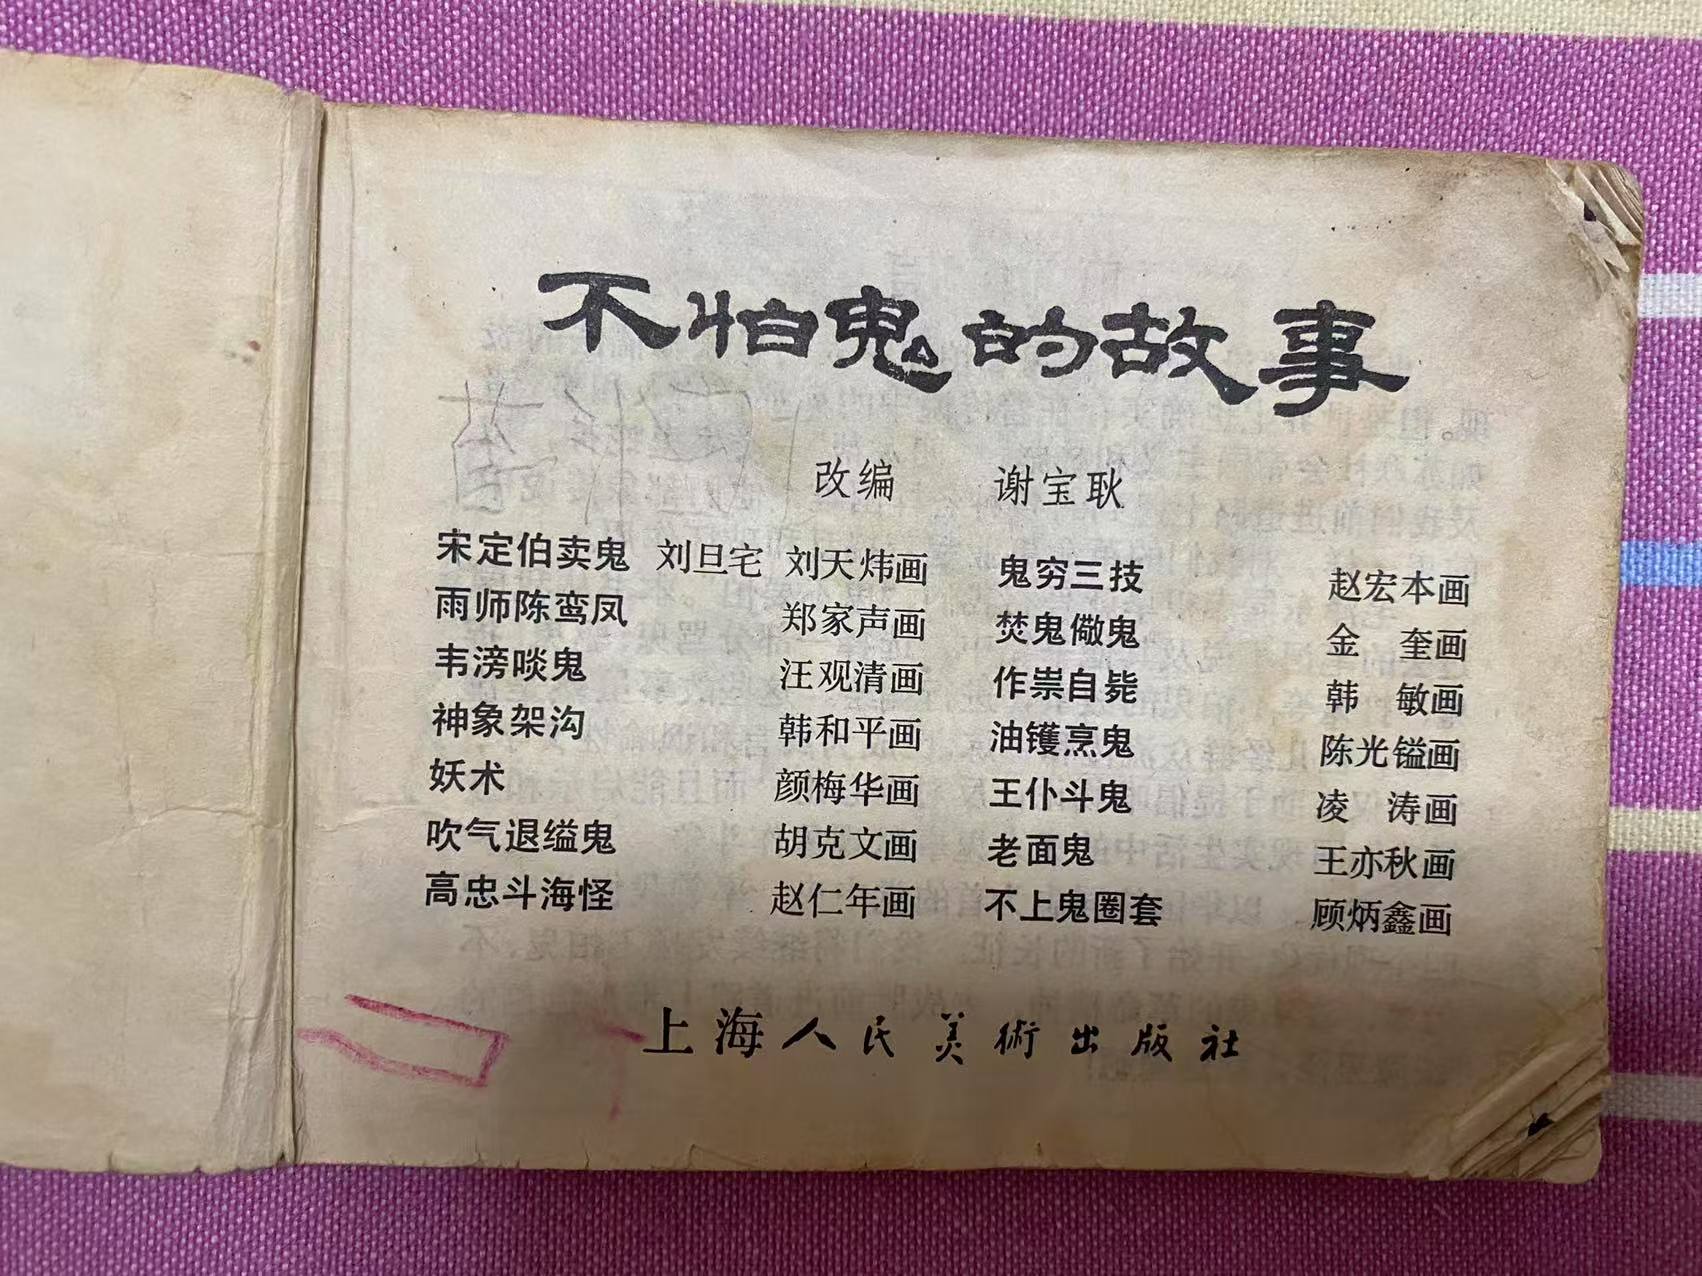 不怕鬼的故事
改编 谢宝耿
宋定伯卖鬼 刘旦宅 刘天炜画
雨师陈鸾凤 郑家声画
韦滂啖鬼 汪观清画
神象架沟 韩和平画
妖术 颜梅华画
吹气退缢鬼 胡克文画
高忠斗海怪 赵仁年画
鬼穷三技 赵宏本画
焚鬼儆鬼 金 奎画
作祟自毙 韩 敏画
油镬烹鬼 陈光镒画
王仆斗鬼 凌 涛画
老面鬼 王亦秋画
不上鬼圈套 顾炳鑫画
上海人民美術出版社